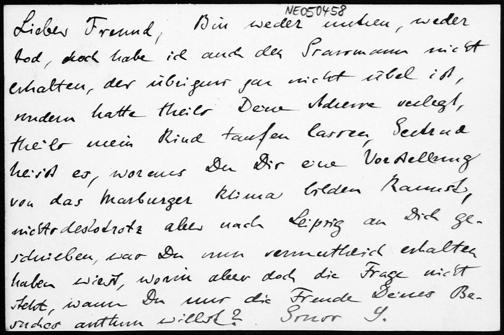 NE050458
Lieber Freund, Bin weder untreu, weder
tod, doch habe ich auch den nicht
erhalten, der übrigens gar nicht übel ist,
sondern hatte theils Deine Adresse verlegt,
theils mein Kind taufen lassen, Gertrud
heisst es, woraus Du Dir eine Vorstellung
von das Marburger Klima bilden kannst,
nichtsdestotrotz aber nach Leipzig an Dich ge-
schrieben, was Du nun vermuthlich erhalten
haben wirst, worin aber doch die Frage nicht
steht, wann Du mir die Freude Deines Be-
suches anthun willst?